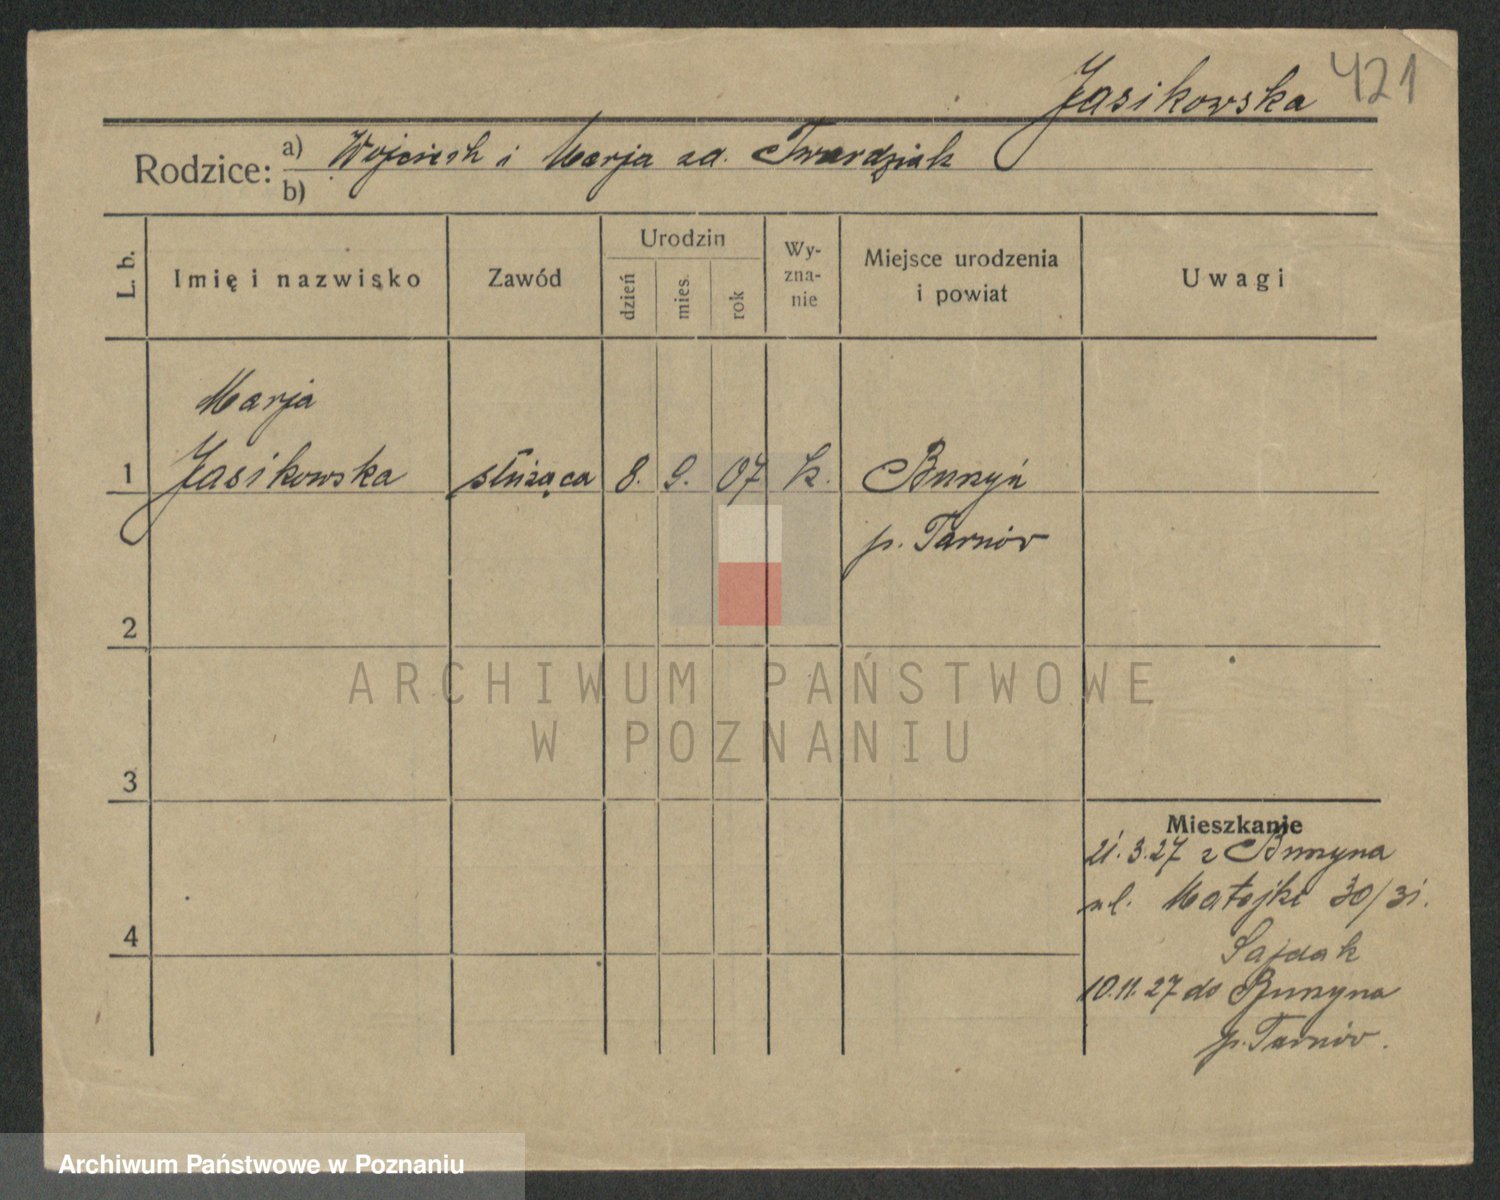 Jasikowska 421
Rodzice: a) Wojciech i Marja zd. Twardziak
b)
L. b. Imię i nazwisko Zawód Urodzin dzień mies. rok Wy-zna-nie Miejsce urodzenia i powiat Uwagi
Marja
1 Jasikowska służąca 8. 9. 07 k. Buszyń
p. Tarnów
2
ARCHIWUM PAŃSTWOWE
W POZNANIU
3
Mieszkanie
21.3.27 z Buszyna
ul. Matejki 30/31.
4
Sajdak
10.11.27 do Buszyna
p. Tarnów.
Archiwum Państwowe w Poznaniu